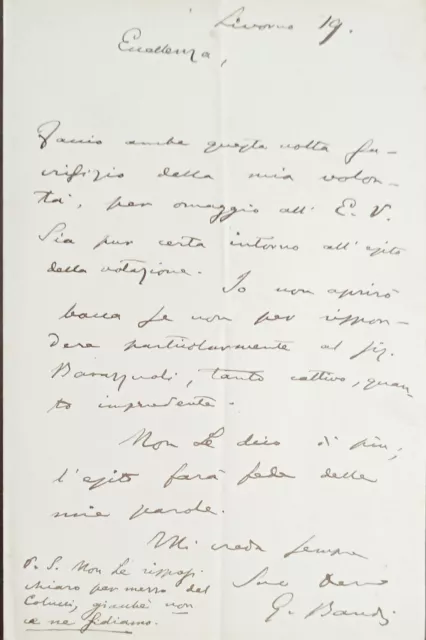 Livorno 19.
Eccellenza,
Faccio anche questa volta sa-
crifizio della mia volon-
tà, per omaggio all' E. V.
Sia pur certa intorno all'esito
della votazione.
Io non aprirò
bocca se non per rispon-
dere particolarmente al sig.
Barazzuoli, tanto cattivo, quan-
to imprudente.
Non Le dico di più;
l'esito farà fede delle
mie parole.
Mi creda sempre
Suo Devo
G. Bandi
P. S. Non Le risposi
chiaro per mezzo del
Colucci, giacchè non
ce ne fidiamo.